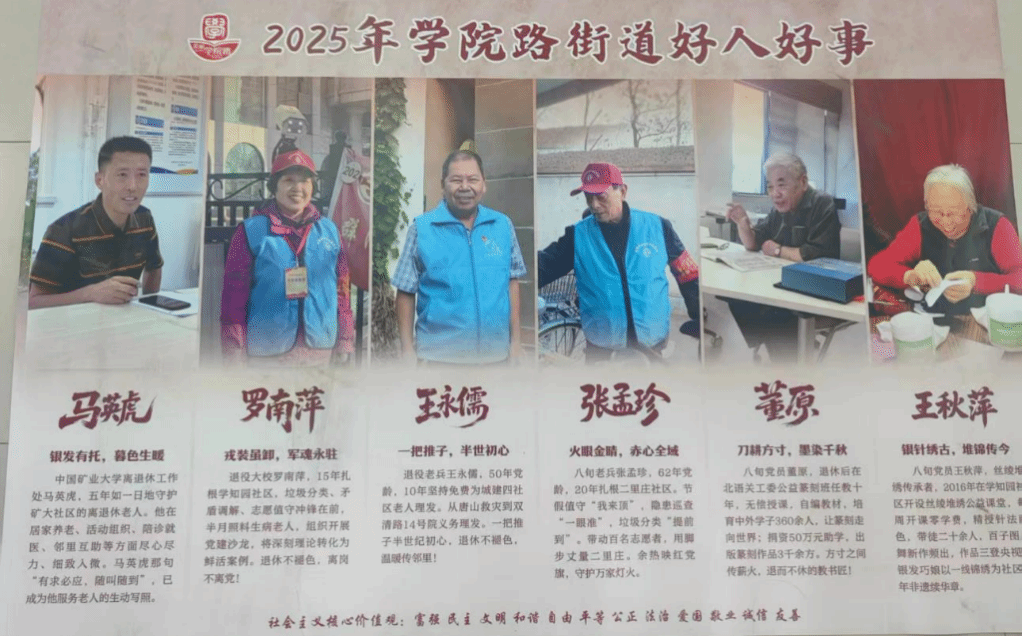 2025年学院路街道好人好事
马英虎
银发有托，暮色生暖
中国矿业大学离退休工作
处马英虎，五年如一日地守护
矿大社区的离退休老人。他在
居家养老、活动组织、陪诊就
医、邻里互助等方面尽心尽
力、细致入微。马英虎那句
“有求必应，随叫随到”，已
成为他服务老人的生动写照。
罗南萍
戎装虽卸，军魂永驻
退役大校罗南萍，15年扎
根学知园社区，垃圾分类、矛
盾调解、志愿值守冲锋在前，
半月照料生病老人，组织开展
党建沙龙，将深刻理论转化为
鲜活案例。退休不褪色，离岗
不离党！
王永儒
一把推子，半世初心
退役老兵王永儒，50年党
龄，10年坚持免费为城建四社
区老人理发。从唐山救灾到双
清路14号院义务理发。一把推
子半世纪初心，退休不褪色，
温暖传邻里！
张孟珍
火眼金睛，赤心全域
八旬老兵张孟珍，62年党
龄，20年扎根二里庄社区。节
假值守“我来顶”，隐患巡查
“一眼准”，垃圾分类“提前
到”。带动百名志愿者，用脚
步丈量二里庄。余热映红党
旗，守护万家灯火。
董原
刀耕方寸，墨染千秋
八旬党员董原，退休后在
北语关工委公益篆刻班任教十
年，无偿授课，自编教材，培
育中外学子360余人，让篆刻走
向世界；捐资50万元助学，出
版篆刻作品3千余方。方寸之间
传薪火，退而不休的教书匠！
王秋萍
银针绣古，堆锦传今
八旬党员王秋萍，丝绫堆
绣传承者，2016年在学知园社
区开设丝绫堆绣公益课堂，每
周开课零学费，精授针法
色，带徒二十余人，百子图
舞新作频出，作品三登央视
银发巧娘以一线锦绣为社区
年非遗续华章。
社会主义核心价值观：富强 民主 文明 和谐 自由 平等 公正 法治 爱国 敬业 诚信 友善